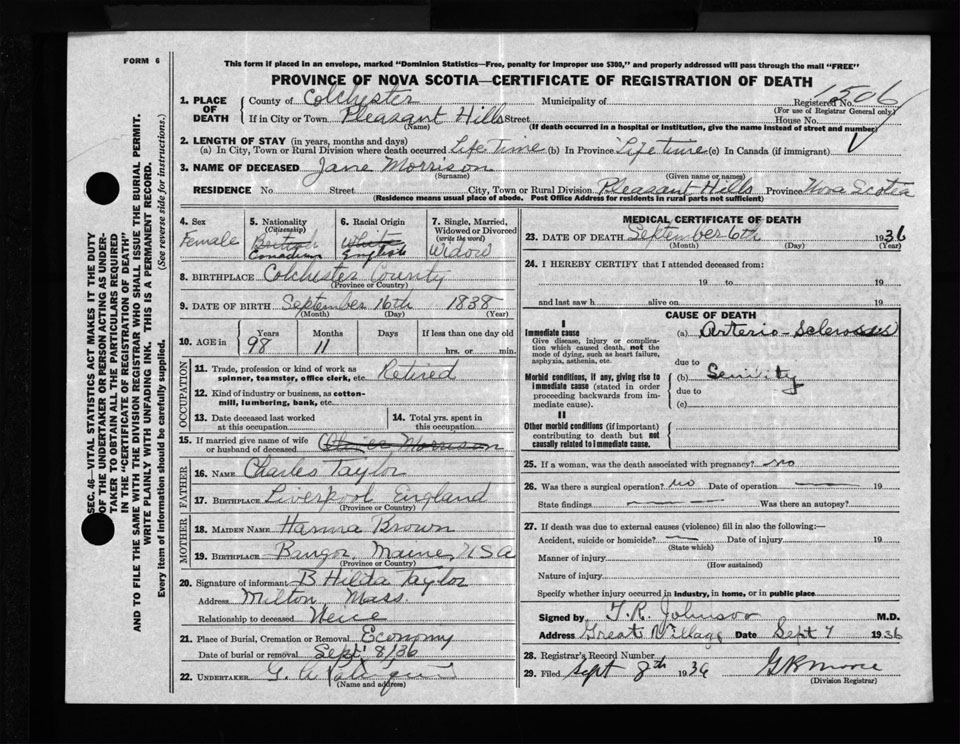 FORM 6
This form if placed in an envelope, marked "Dominion Statistics—Free, penalty for improper use $300," and properly addressed will pass through the mail "FREE"
PROVINCE OF NOVA SCOTIA—CERTIFICATE OF REGISTRATION OF DEATH
SEC. 46—VITAL STATISTICS ACT MAKES IT THE DUTY
OF THE UNDERTAKER OR PERSON ACTING AS UNDER-
TAKER TO OBTAIN ALL THE PARTICULARS REQUIRED
IN THE "CERTIFICATE OF REGISTRATION OF DEATH"
AND TO FILE THE SAME WITH THE DIVISION REGISTRAR WHO SHALL ISSUE THE BURIAL PERMIT.
WRITE PLAINLY WITH UNFADING INK. THIS IS A PERMANENT RECORD.
Every item of information should be carefully supplied. (See reverse side for instructions.)
1. PLACE OF DEATH
County of Colchester Municipality of Registered No. 1506
(For use of Registrar General only)
If in City or Town Pleasant Hills Street House No.
(Name) (If death occurred in a hospital or institution, give the name instead of street and number)
2. LENGTH OF STAY (in years, months and days)
(a) In City, Town or Rural Division where death occurred Life time (b) In Province Life time (c) In Canada (if immigrant)
3. NAME OF DECEASED Jane Morrison
(Surname) (Given name or names)
RESIDENCE No. Street City, Town or Rural Division Pleasant Hills Province Nova Scotia
(Residence means usual place of abode. Post Office Address for residents in rural parts not sufficient)
4. Sex
Female
5. Nationality
(Citizenship)
British
Canadian
6. Racial Origin
White
English
7. Single, Married,
Widowed or Divorced
(write the word)
Widow
8. BIRTHPLACE Colchester County
(Province or County)
9. DATE OF BIRTH September 16th 1838
(Month) (Day) (Year)
10. AGE in Years 98 Months 11 Days If less than one day old
hrs. or min.
OCCUPATION
11. Trade, profession or kind of work as
spinner, teamster, office clerk, etc. Retired
12. Kind of industry or business, as cotton-
mill, lumbering, bank, etc.
13. Date deceased last worked
at this occupation
14. Total yrs. spent in
this occupation
15. If married give name of wife
or husband of deceased Morrison
FATHER
16. NAME Charles Taylor
17. BIRTHPLACE Liverpool England
(Province or Country)
MOTHER
18. MAIDEN NAME Hanna Brown
19. BIRTHPLACE Bangor, Maine, USA
(Province or Country)
20. Signature of informant B Hilda Taylor
Address Milton Mass.
Relationship to deceased Neice
21. Place of Burial, Cremation or Removal Economy
Date of burial or removal Sept 8/36
22. UNDERTAKER G. A
(Name and address)
MEDICAL CERTIFICATE OF DEATH
23. DATE OF DEATH September 6th 1936
(Month) (Day) (Year)
24. I HEREBY CERTIFY that I attended deceased from:
19 to 19
and last saw h alive on 19
CAUSE OF DEATH
I
Immediate cause (a) Arterio-Sclerosis
Give disease, injury or complica-
tion which caused death, not the
mode of dying, such as heart failure,
asphyxia, asthenia, etc.
due to
Morbid conditions, if any, giving rise to
immediate cause (stated in order
proceeding backwards from im-
mediate cause).
(b) Senility
due to
(c)
II
Other morbid conditions (if important)
contributing to death but not
causally related to immediate cause.
25. If a woman, was the death associated with pregnancy? no
26. Was there a surgical operation? no Date of operation 19
State findings Was there an autopsy?
27. If death was due to external causes (violence) fill in also the following:—
Accident, suicide or homicide? Date of injury 19
(State which)
Manner of injury
(How sustained)
Nature of injury
Specify whether injury occurred in industry, in home, or in public place
Signed by T. R. Johnson M.D.
Address Great Village Date Sept 7 1936
28. Registrar's Record Number
29. Filed Sept 8th 1936 G R Moore
(Division Registrar)